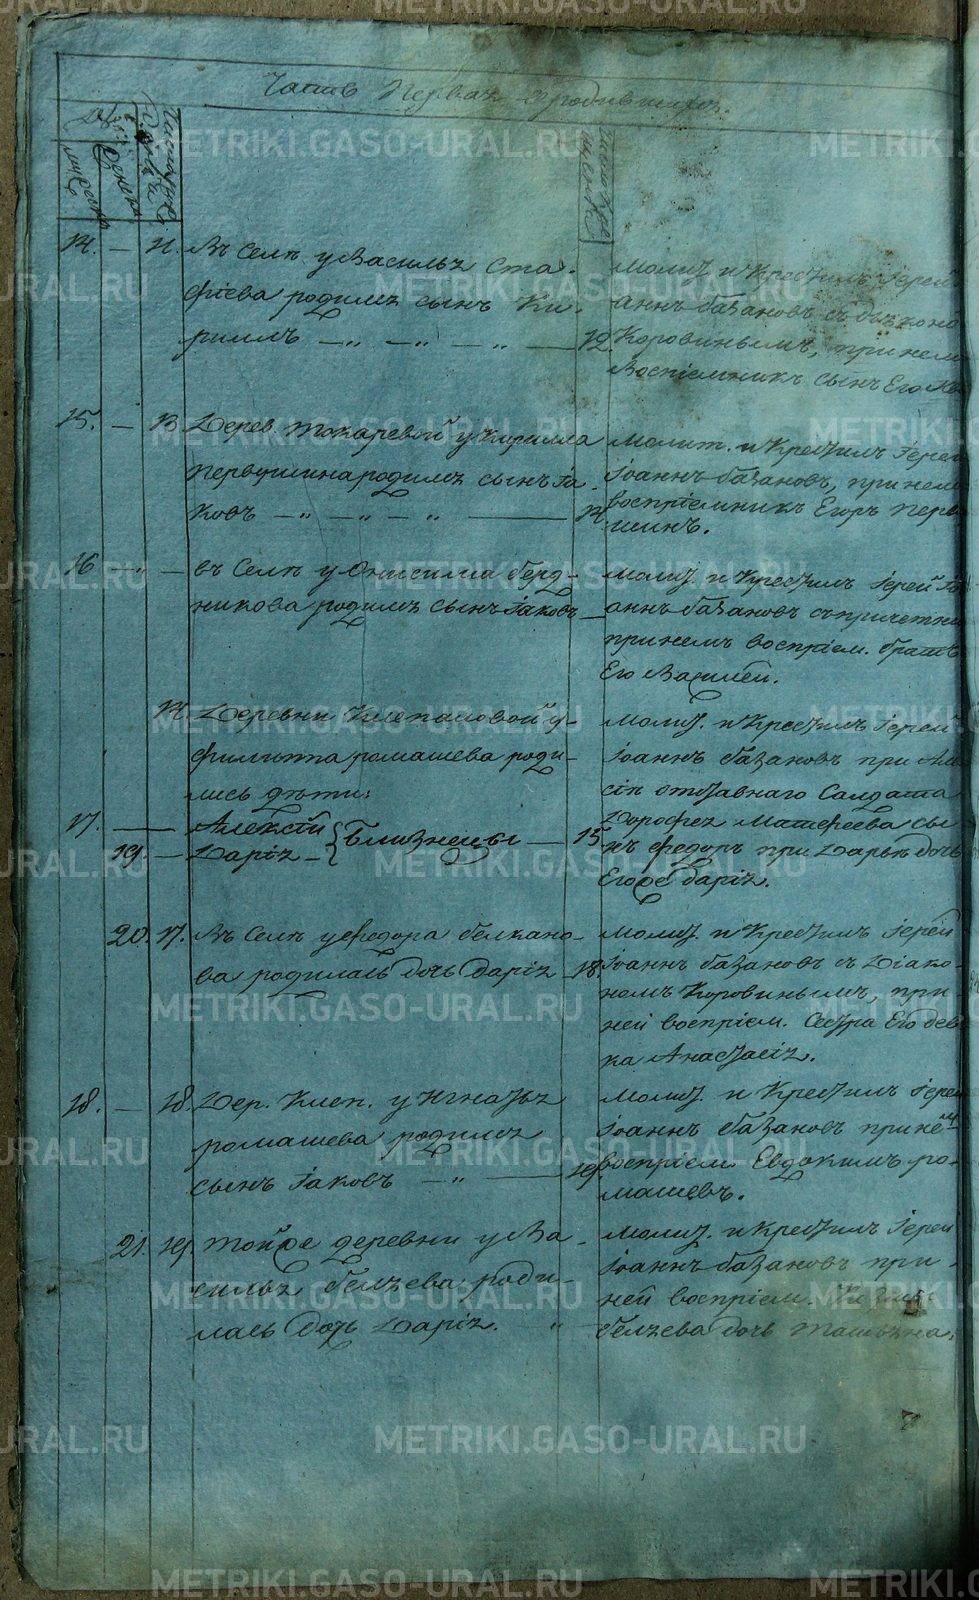 Часть Первая о родившихся.
14. — 11. Въ Селѣ у Василья Ста-
фіева родился сынъ Ки-
риллъ — „ — „ — „ — 12.
Молит. и Крестилъ Іерей
аннъ базановъ съ дьяконо
Коровинымъ, при немъ
Воспріемникъ сынъ Его
15. — 13. Дерев. Токаревой у Кирилла
Первушина родился сынъ Іа-
ковъ — „ — „ — „ — 14.
Молит. и Крестилъ Іерей
Іоаннъ базановъ, при немъ
воспріемникъ Егоръ Перву
шинъ.
16 — „ — въ Селѣ у Онисима берд-
никова родился сынъ Іаковъ —
Молит. и Крестилъ Іерей Іо
аннъ базановъ съ причетни
при немъ воспріем. братъ
Его Василей.
14. Деревни Клепаловой у
филиппа ромашева роди-
лись дѣти:
17. — Алексѣй
19. — Дарія } Близнецы — 15.
Молит. и Крестилъ Іерей
Іоаннъ базановъ при Але
сіи отставнаго Салдата
Дорофея Матфеева сы
нъ федоръ при Дарьѣ дочь
Егоже дарія.
20. 17. Въ Селѣ у федора белкано-
ва родилась дочь дарія — 18.
Молит. и Крестилъ Іерей
Іоаннъ базановъ съ Діако-
номъ Коровинымъ, при
ней воспріем. Сестра Его дев
ка Анастасія.
18. — 18. Дер. Клеп. у Игнатья
ромашева родился
сынъ Іаковъ — „ — 19.
Молит. и Крестилъ Іерей
Іоаннъ базановъ при нем
воспріем. Евдокимъ ро-
машевъ.
21. 19. Тойже деревни у Ва-
силья беляева роди-
лась дочь Дарія. „
Молит. и Крестилъ Іерей
Іоаннъ базановъ при
ней воспріем.
беляева дочь Татьяна.
METRIKI.GASO-URAL.RU